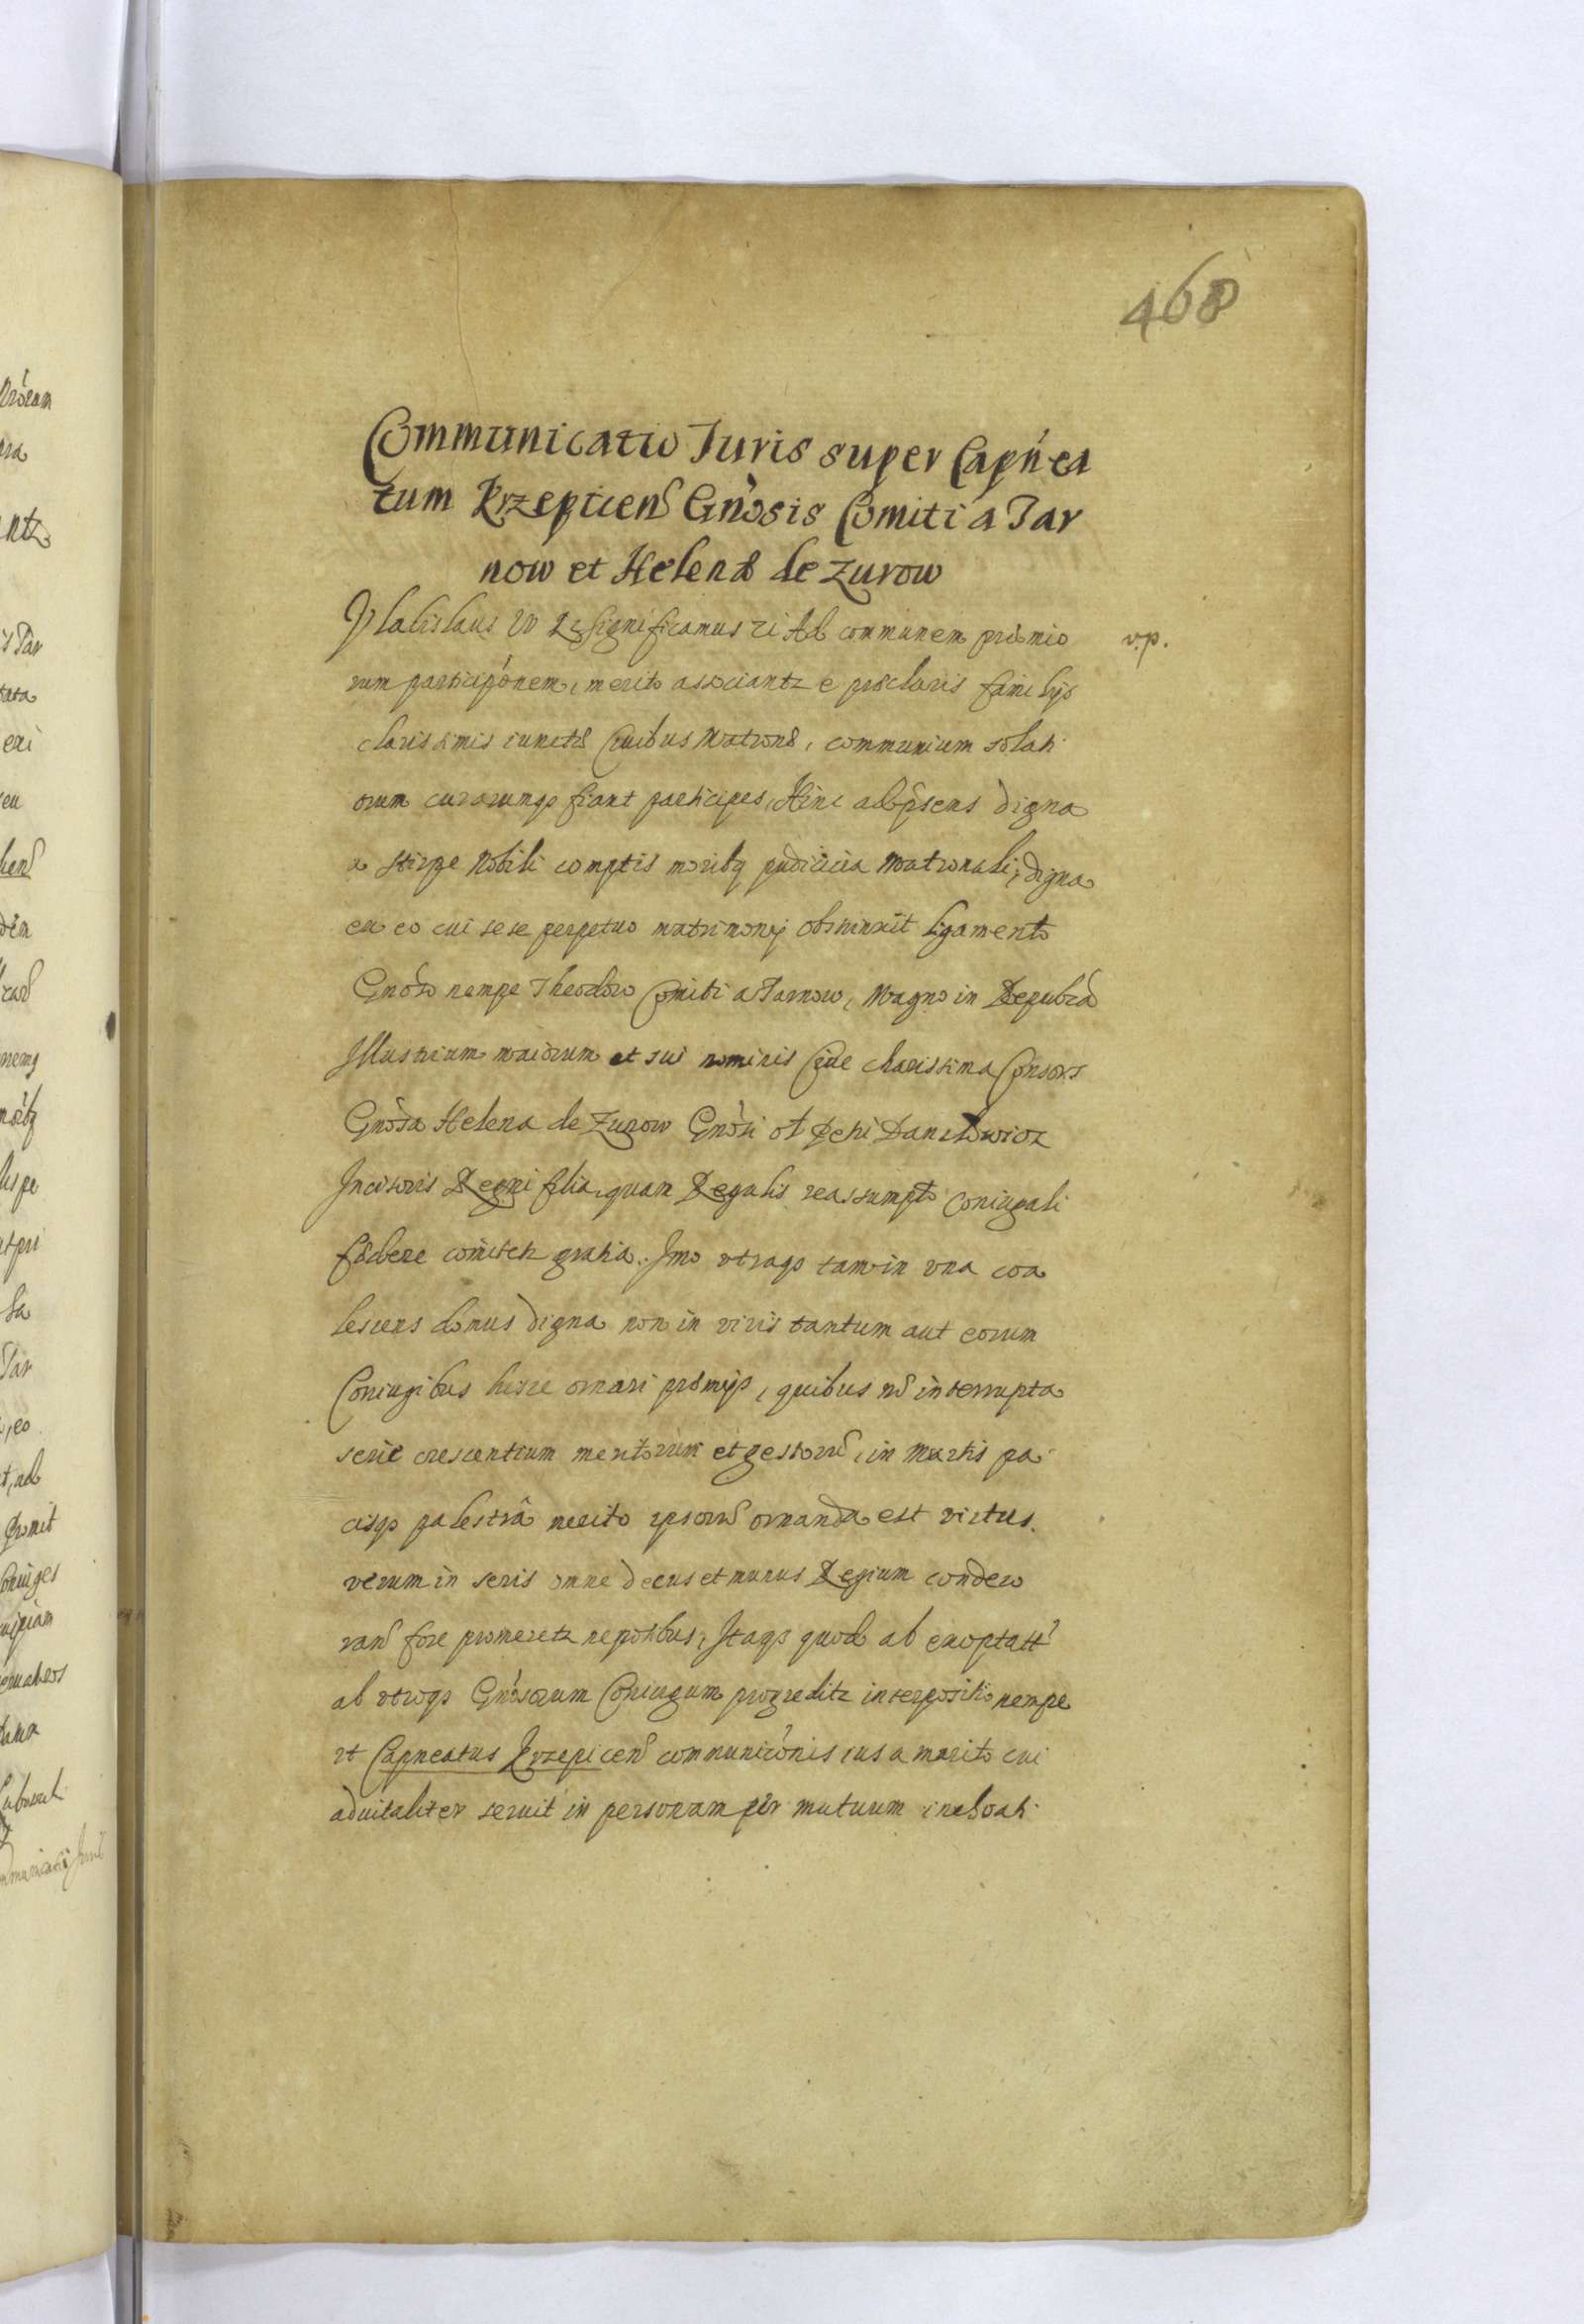 468
Communicatio Iuris super Capn'ea
tum Krzepicens Gnosis Comiti a Tar
now et Helenæ de Zurow
Vladislaus IV Significamus Ad communem præmio
v.p.
rum particip'onem, merito associantz e præclaris familijs
clarissimis iunctæ Ciuibus Matronæ, communium solati
orum curarumq3 fiant participes, Hinc ad p̃sens digna
a stirpe Nobili comptis morib9 pudicicia Matronali, digna
ex eo cui sese perpetuo matrimonij obstrinxit ligamento
Gnoso nempe Theodoro Comiti a Tarnow, Magno in Republ'ca
Illustrium maiorum et sui nominis Ciue charissima Consors
Gnosa Helena de Zurow Gnosi ol Danilowicz
Incisoris Regni filia, quam Regalis reassumpto Coniugali
fædere comitetz gratia. Imo vtraq3 tam in vna coa
lescens domus digna non in viris tantum aut eorum
Coniugibus hisce ornari præmijs, quibus nõ interrupta
serie crescentium meritorum et gestorũ, in Martis pa
cisq3 palestrâ merito ipsorũ ornanda est virtus.
verum in seris omne decus et munus Regium condeco
rand fore prometetz nepotibus, Itaq3 quod ab exoptatt'
ab vtroq3 Gnosorum Coniugum progreditz interpositio nempe
vt Capneatus Krzepicens communic'onis ius a marito cui
aduitaliter seruit in personam per mutuum inchoati